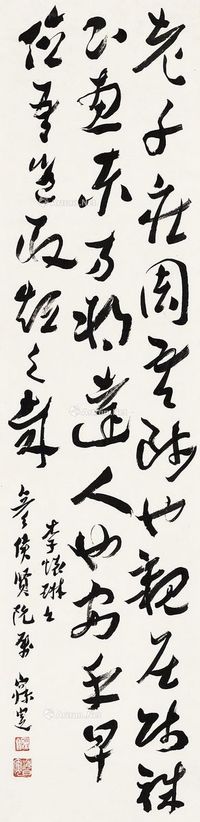 老子莊周吾之師也親居賤職
下惠東方朔達人也安乎卑
位吾豈敢短之哉
李懷琳
侯賢阮屬 寐叟